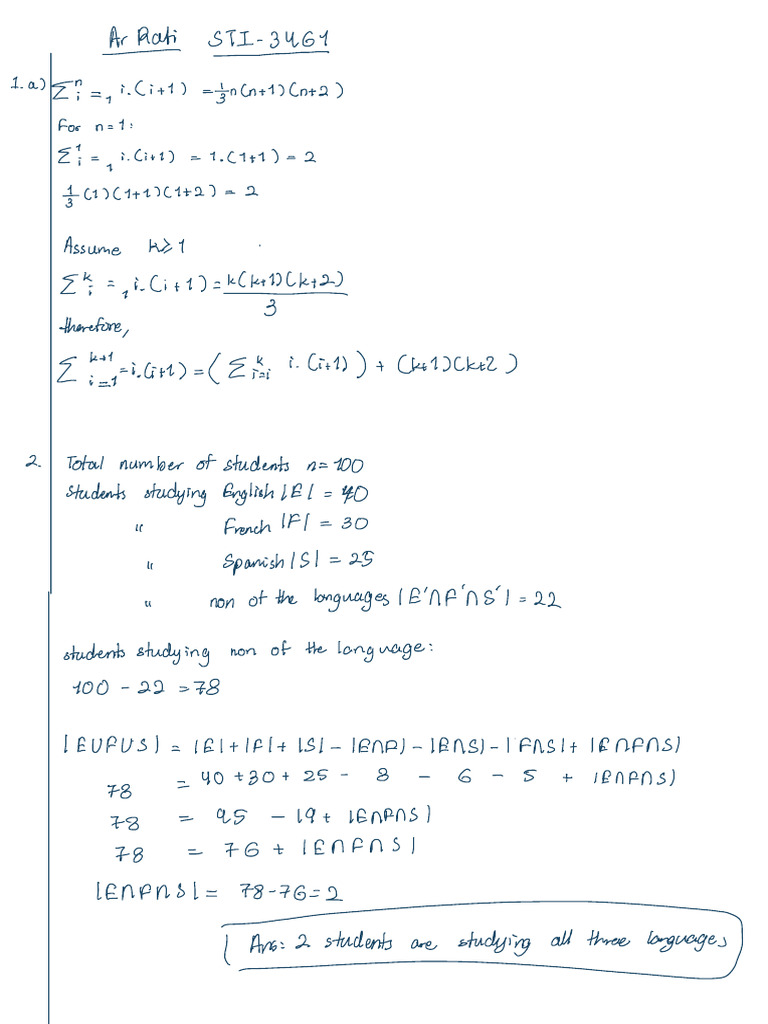 Ar Rati STI-3461
1. a) ∑ⁿᵢ₌₁ i.(i+1) = 1/3 n(n+1)(n+2)
For n=1:
∑¹ᵢ₌₁ i.(i+1) = 1.(1+1) = 2
1/3 (1)(1+1)(1+2) = 2
Assume k≥1
∑ᵏᵢ₌₁ i.(i+1) = k(k+1)(k+2)/3
therefore,
∑ᵏ⁺¹ᵢ₌₁ = i.(i+1) = (∑ᵏᵢ₌ᵢ i.(i+1)) + (k+1)(k+2)
2. Total number of students n=100
Students studying English |E| = 40
" French |F| = 30
" Spanish |S| = 25
" non of the languages |E'∩F'∩S'| = 22
students studying non of the language:
100 - 22 = 78
|E∪F∪S| = |E|+|F|+|S|-|E∩F|-|E∩S|-|F∩S|+|E∩F∩S|
78 = 40+30+25-8-6-5+|E∩F∩S|
78 = 95-19+|E∩F∩S|
78 = 76+|E∩F∩S|
|E∩F∩S| = 78-76=2
Ans: 2 students are studying all three languages